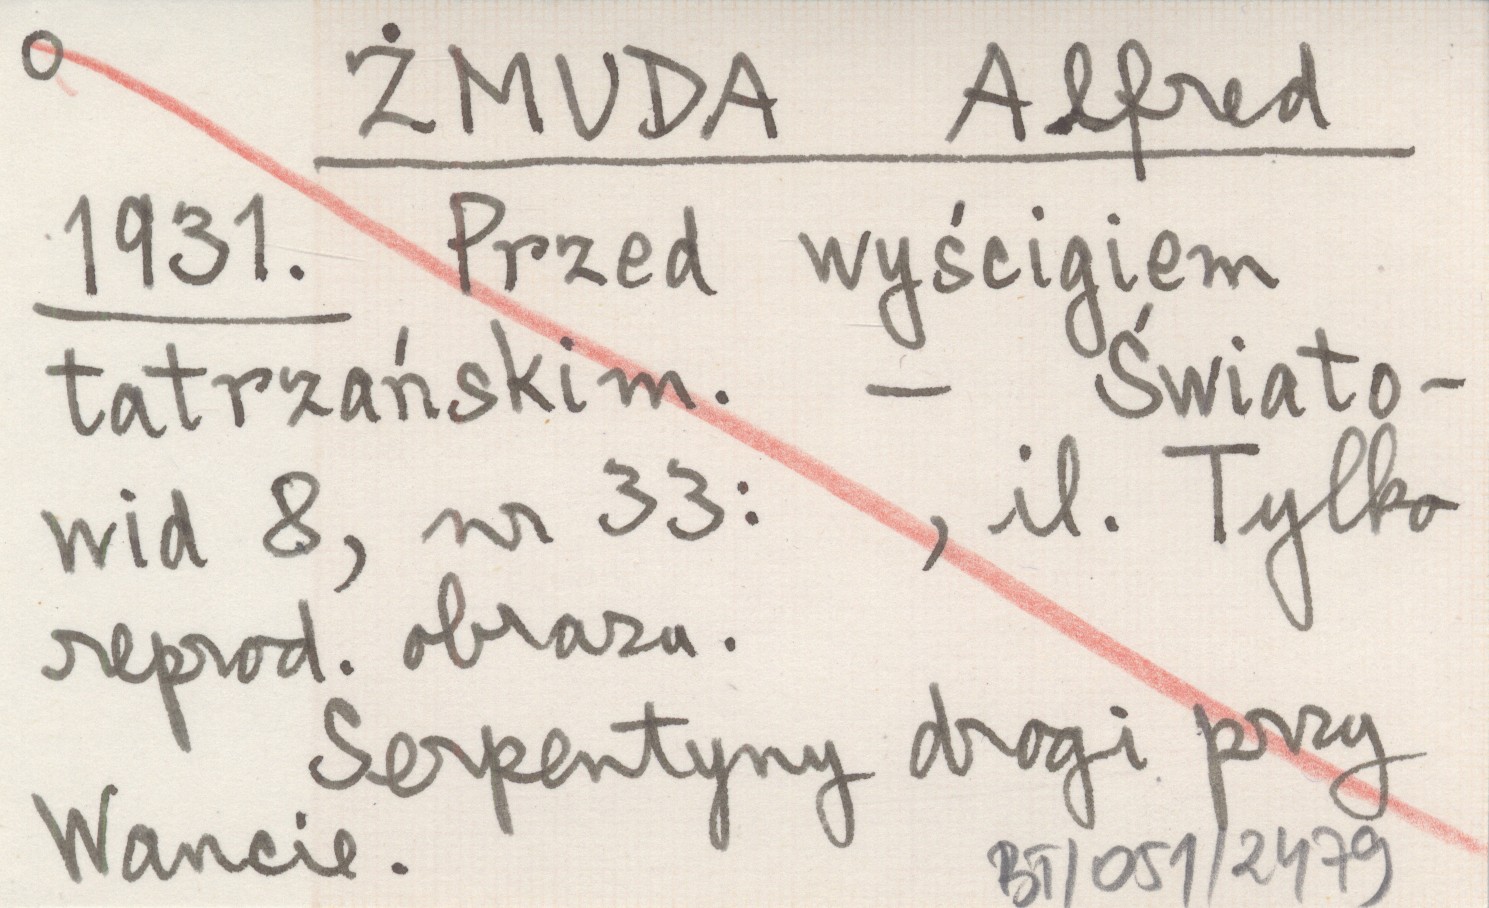 ŻMUDA Alfred
1931. Przed wyścigiem
tatrzańskim. — Świato-
wid 8, nr 33: , il. Tylko
reprod. obrazu.
Serpentyny drogi przy
Wancie.
BT/051/2479